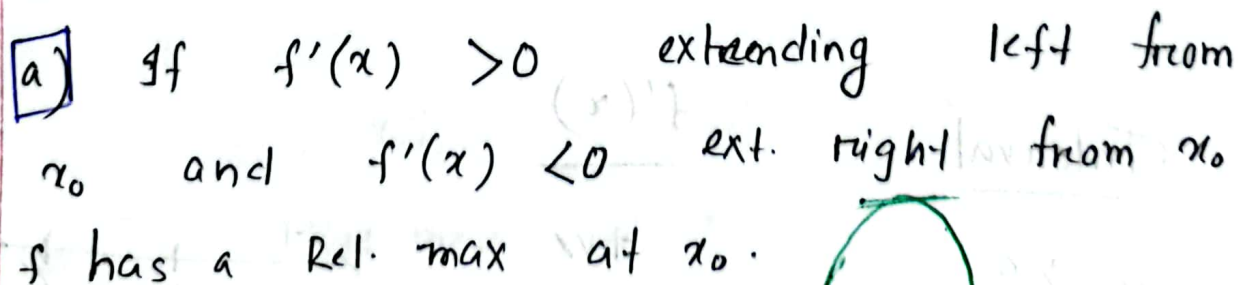 a) If f'(x) >0 extending left from
x₀ and f'(x) <0 ext. right from x₀
f has a Rel. max at x₀.